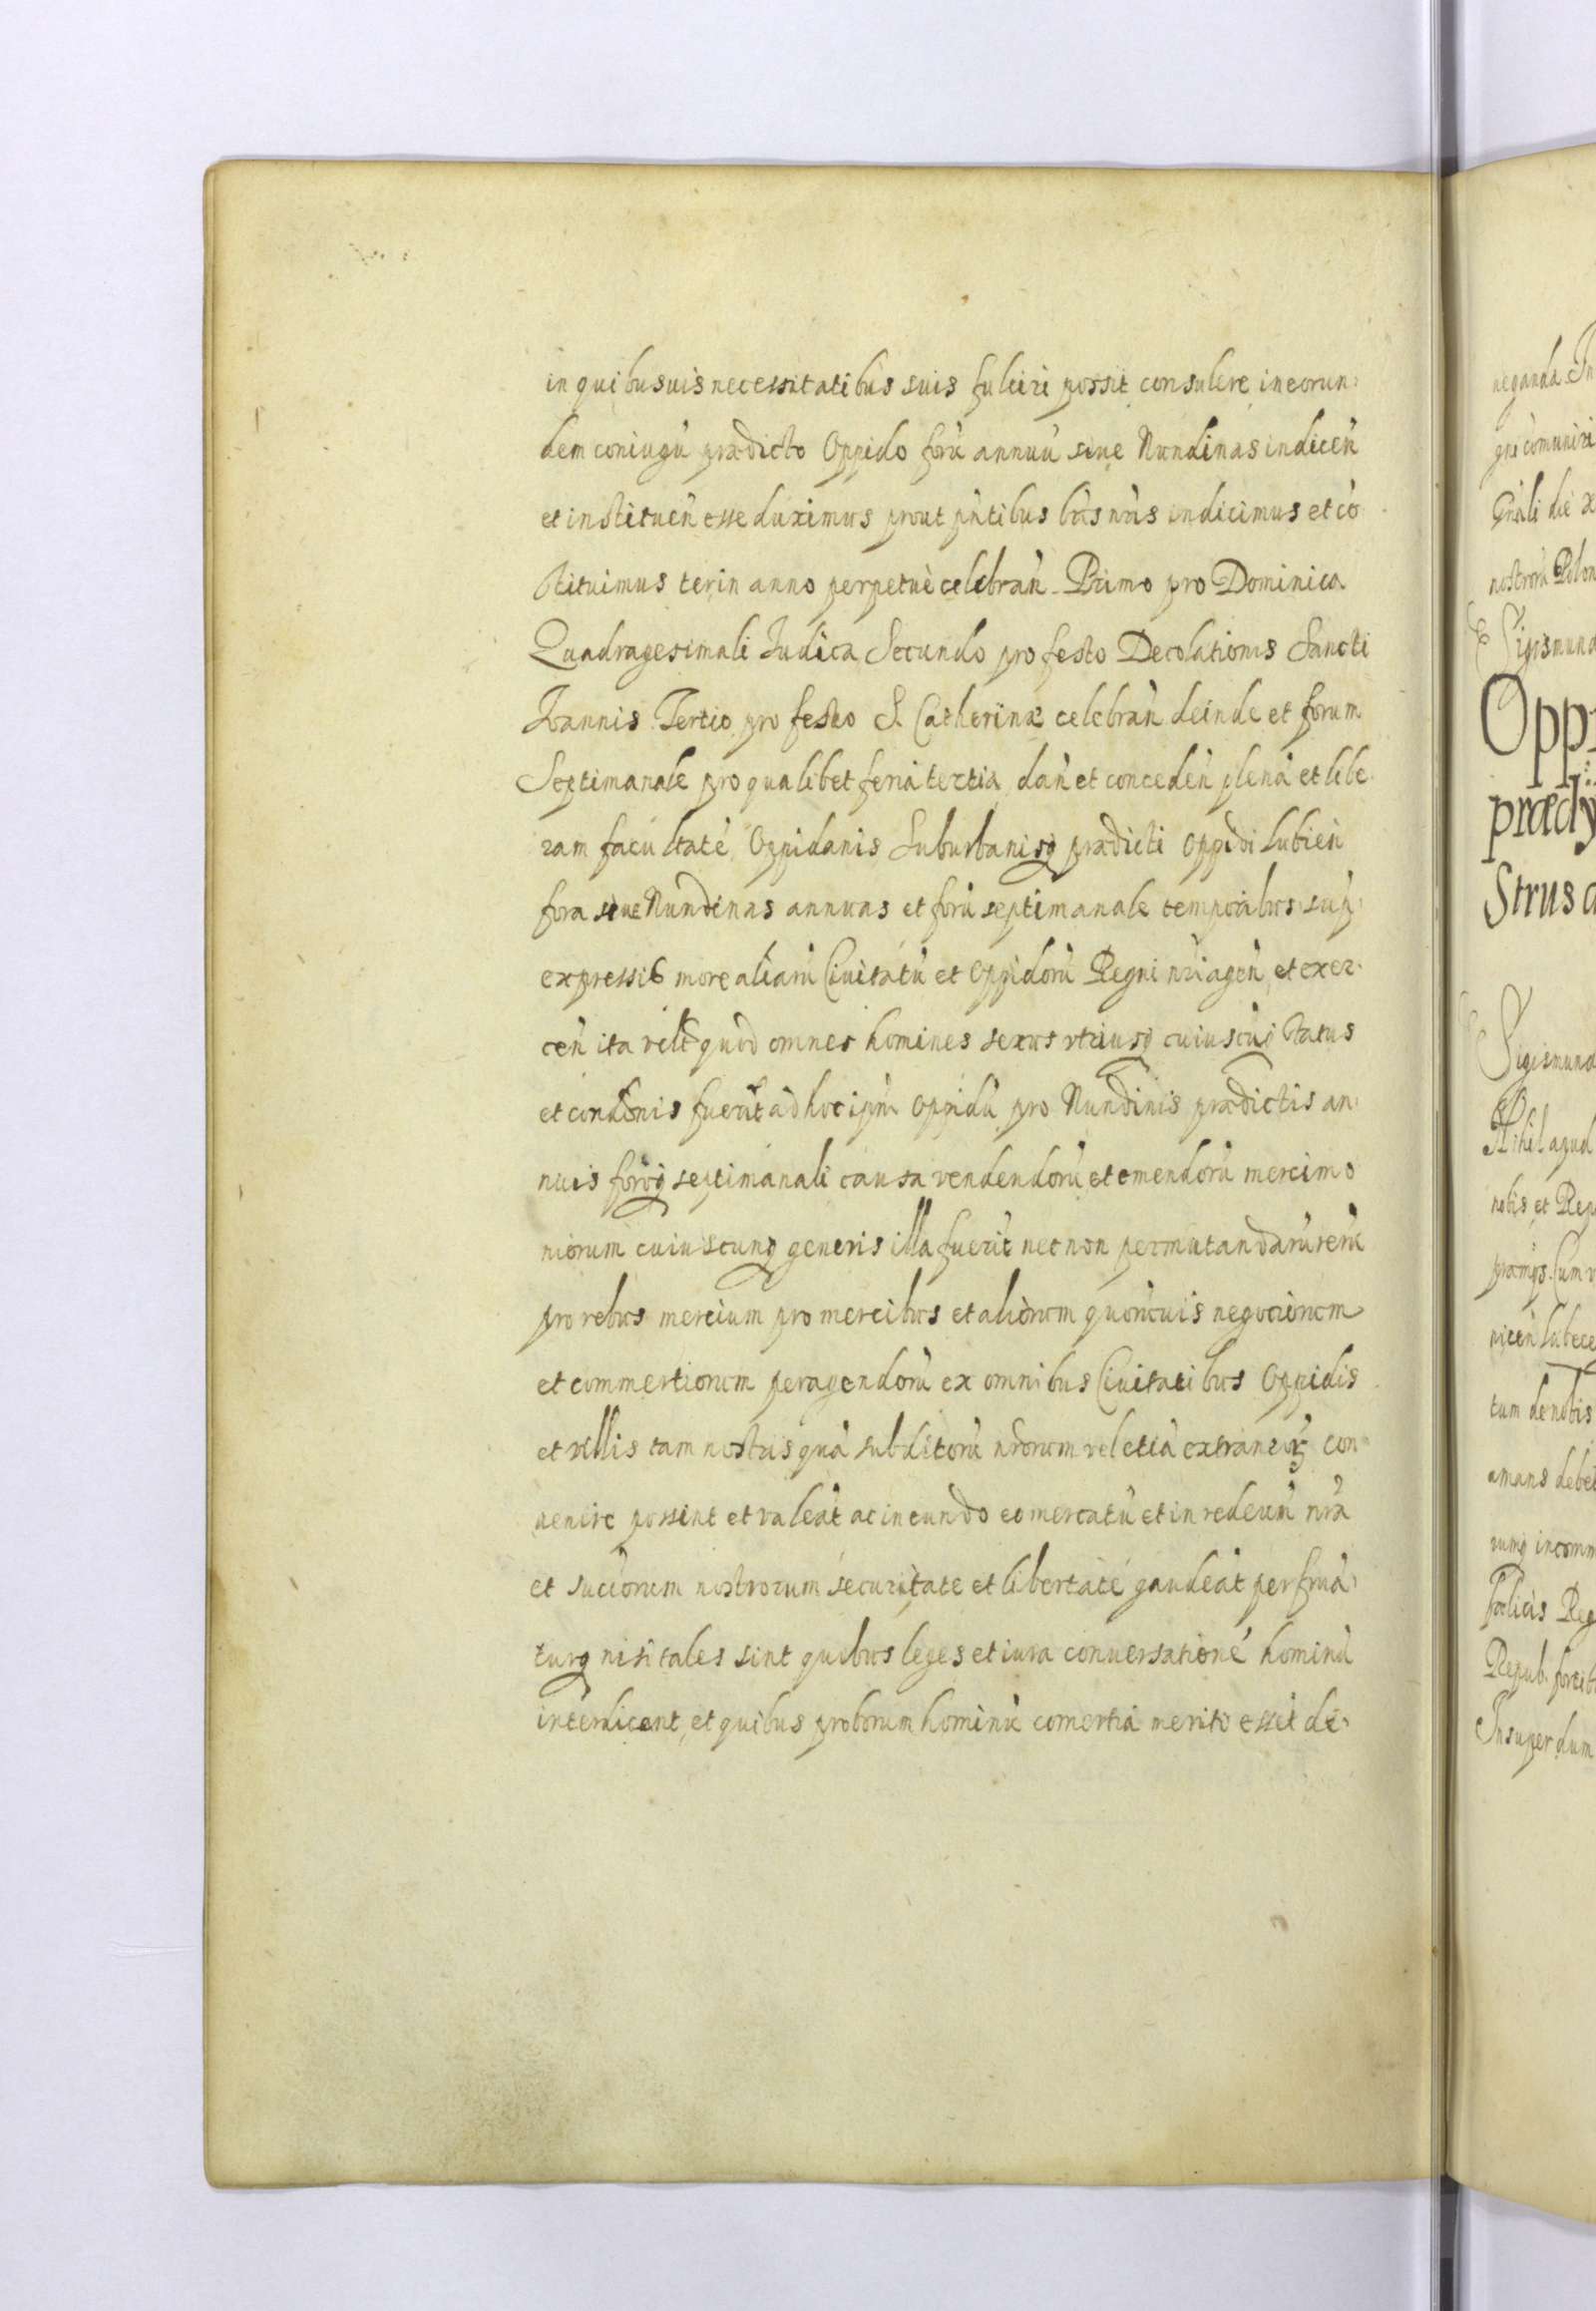 in quibusuis necessitatibus suis fulciri possit consulere in eorun:
dem coniugũ prædicto Oppido forũ annuũ siue Nundinas indiceñ
et instituen̄ esse duximus prout pñtibus lr̃is nr̃is indicimus et cõ
stituimus ter in anno perpetuè celebrañ. Primo pro Dominica
Quadragesimali Iudica, Secundo pro festo Decolationis Sancti
Ioannis Tertio pro festo S. Catherinæ celebrañ deinde et forum
Septimanale pro qualibet feria tertia, dañ et concedeñ plenã et libe.
ram facultatẽ, Oppidanis Suburbanisq prædicti oppidi Lubieñ
fora siue Nundinas annuas et forũ septimanale temporibus sup:
expressis more aliarũ Ciuitatũ et Oppidorũ Regni nr̃i ageñ, et exer:
ceñ ita vclt quod omnes homines sexus vtriusq cuiuscũq status
et condõnis fuerit ad hoc ipm̃ oppidũ pro Nundinis prædictis an:
nuis foroq septimanali causa vendendorũ et emendorũ mercimo
niorum cuiuscunq generis illa fuerĩt nec non permutandarũ rerũ
pro rebus mercium pro mercibus et aliorum quorũuis negociorum
et commertiorum peragendorũ ex omnibus Ciuitatibus Oppidis
et villis tam nostris quã subditorũ nrõrum vel etiã extraneoꝝ con=
uenire possint et valeãt ac in eundo eo mercatũ et in redeuñ nr̃a
et sucõrum nostrorum securitate et libertatẽ gaudeãt perfruã:
turq nisi tales sint quibus leges et iura conuersationẽ hominũ
interdicent, et quibus proborum hominũ comertia merito essẽt de:
neganda. In
gni cõmuniri
Grali die x
nostrorũ Polon
Sigismund
Opp
prædy
Strus
Sigismund
Nihil apud
nobis et Rep
præmijs. Cum
niceñ Lubece
tum de nobis
amans debet
rumq incomm
fœlicis Reg
Repub. fortib
Insuper dum